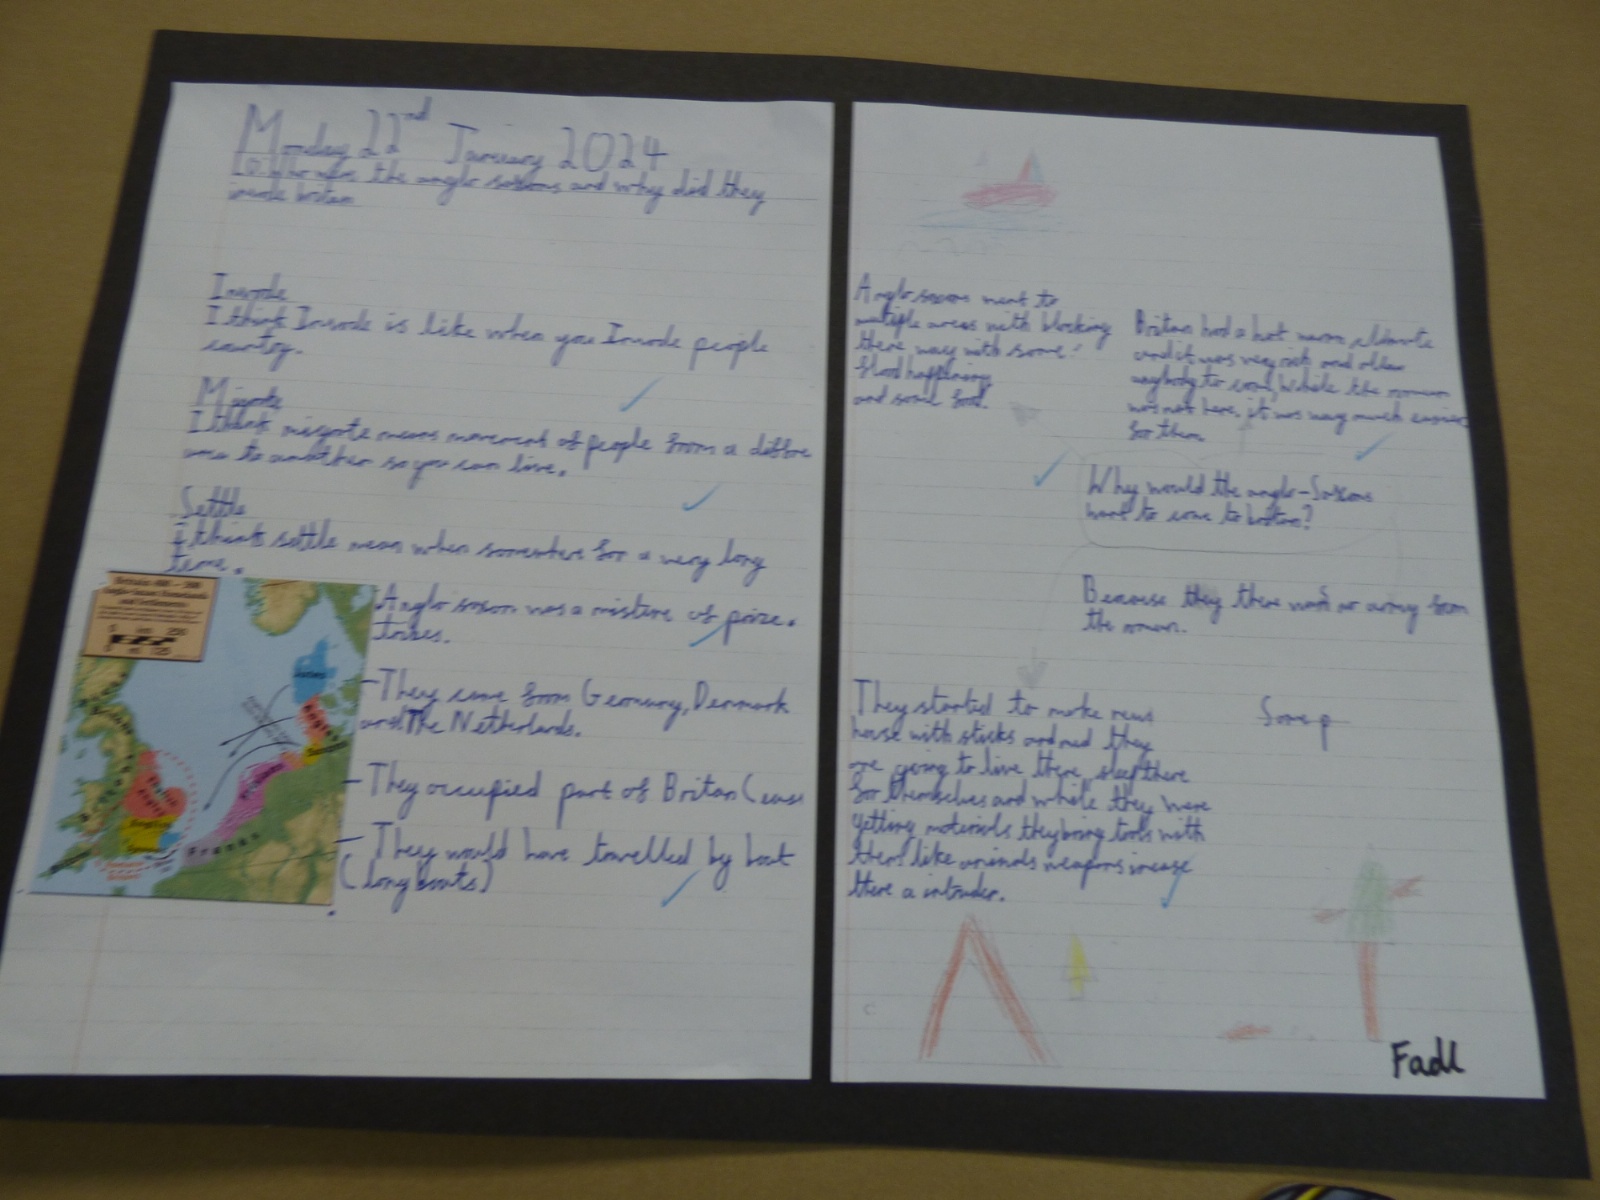 Monday 22nd January 2024
L.O. Who were the anglo saxons and why did they
invade britan
Invade
I think Invade is like when you Invade people
country.
Migrate
I think migrate means movement of people from a diffre
area to another so you can live.
Settle
I think settle mean when somewhere for a very long
time.
Anglo saxon was a mixture of
tribes.
- They came from Germany, Denmark
and The Netherlands.
- They occupied part of Britan (
- They would have travelled by boat
(long boats)
Anglo saxons went to
multiple areas with blocking
there way with some
flood happening
and some food.
Britan had a hot warm climate
and it was very rich and allow
anybody to come, While the roman
was not here. it was way much easier
for them.
Why would the anglo-Saxons
want to come to britan?
Because they there was no army from
the roman.
They started to make new
house with sticks and mud they
are going to live there, sleep there
for themselves and while they were
getting materials they bring tools with
them like animals weapons incase
there a intruder.
Some p
Fadl